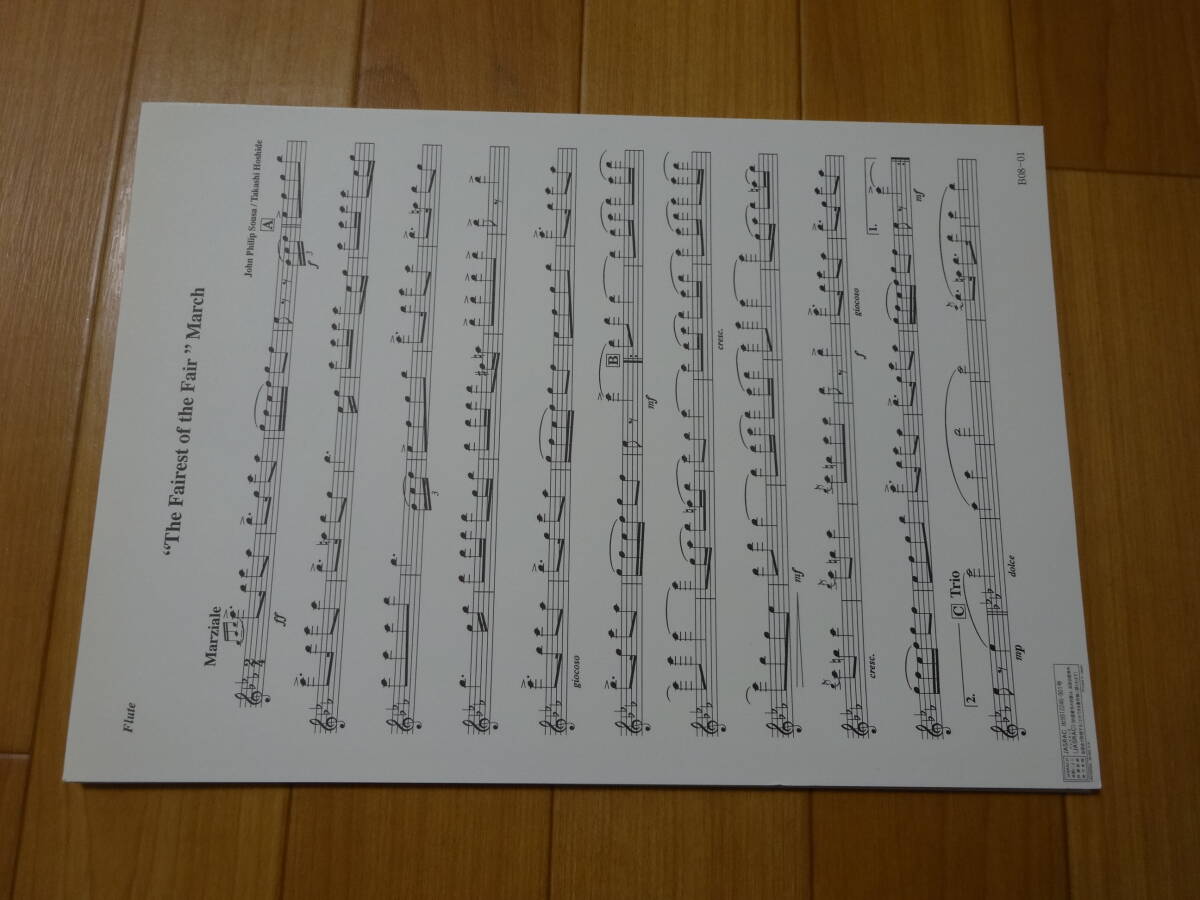 Flute
"The Fairest of the Fair" March
John Philip Sousa / Takashi Hoshide
Marziale
A
ff
f
3
3
giocoso
B
mf
cresc.
mf
cresc.
f
giocoso
1.
mf
2.
C Trio
mp
dolce
B08-01